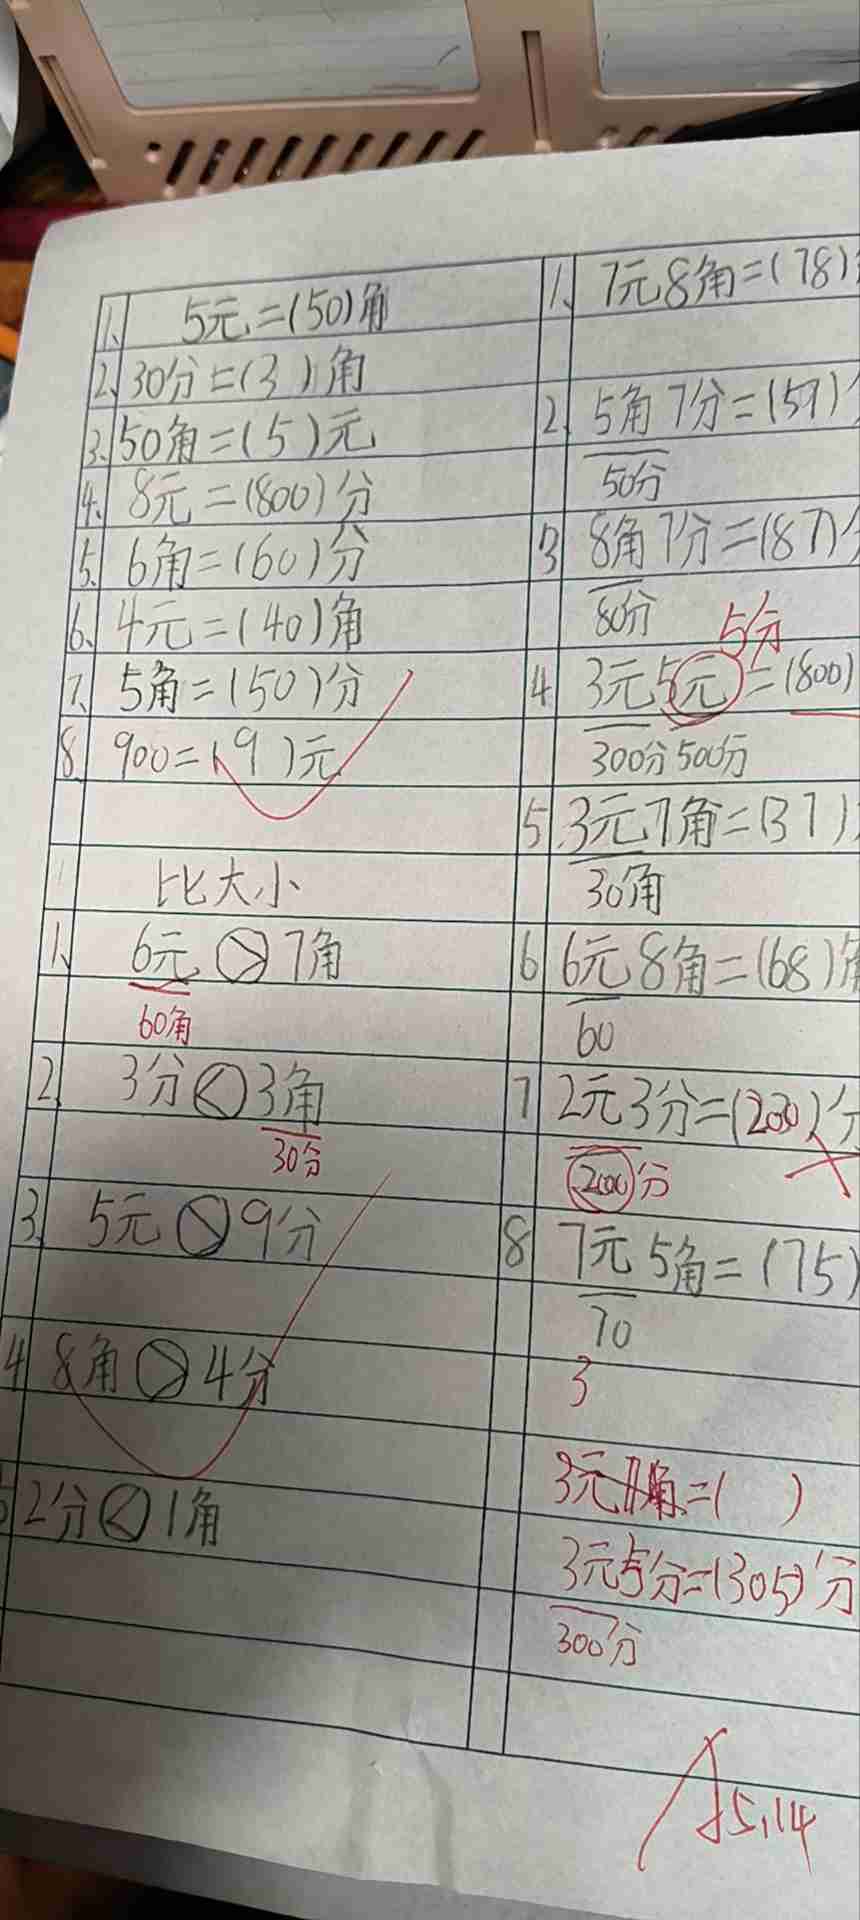 1、 5元=(50)角
2、30分=(3)角
3、50角=(5)元
4、8元=(800)分
5、6角=(60)分
6、4元=(40)角
7、5角=(50)分
8、900=(9)元
比大小
1、6元>7角
60角
2、3分<3角
30分
3、5元>9分
4 8角>4分
2分<1角
1、7元8角=(78)
2、5角7分=(57)分
50分
3 8角7分=(87)分
80分
5分
4 3元5元=(800)
300分 500分
5 3元7角=(37)
30角
6 6元8角=(68)角
60
7 2元3分=(200)分
200分
8 7元5角=(75)
70
3
3元 角=( )
3元5分=(305)分
300分
5.14